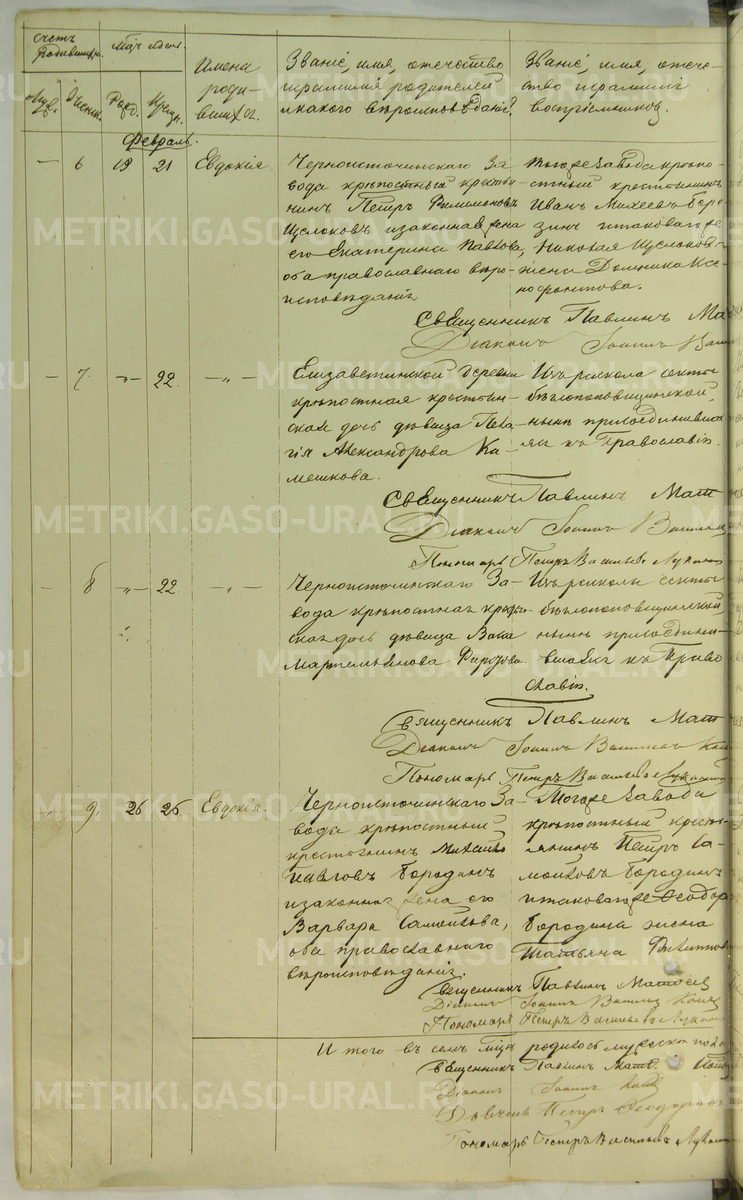 Счетъ родившихся.
Мѣс. и день.
Имена родившихся.
Званіе, имя, отчество и фамилія родителей и какого вѣроисповѣданія.
Званіе, имя, отчество и фамилія воспріемниковъ.
Муж.
Женск.
Рожд.
Крещ.
Февраль.
— 6 19 21 Евдокія.
Черноисточинскаго За-
вода крѣпостный крестья-
нинъ Петръ
Щелоковъ и законная жена
его Екатерина Павлова,
оба православнаго вѣро-
исповѣданія
Тогоже завода крѣпо-
стный крестьянинъ
Иванъ Михеевъ Боро-
зинъ и таковагоже
Николая Щелокова
жена Домника Ксе-
нофонтова.
Священникъ Павлинъ
Діаконъ Іоаннъ
— 7. -„- 22. -„-
Елизаветинской деревни
крѣпостная крестьян-
ская дочь дѣвица Пела-
гія Александрова Ка-
мешкова.
Изъ раскола секты
бѣглопоповщинской,
нынѣ присоединивша-
яся къ Православію.
Священникъ Павлинъ
Діаконъ Іоаннъ
Пономарь Петръ Васильевъ
— 8 -„- 22. -„-
Черноисточинскаго За-
вода крѣпостная крестьян-
ская дочь дѣвица Васса
Мартемьянова
Изъ раскола секты
бѣглопоповщинской,
нынѣ присоединив-
шаяся къ Право-
славію.
Священникъ Павлинъ
Діаконъ Іоаннъ
Пономарь Петръ Васильевъ
9. 26 26 Евдокія.
Черноисточинскаго За-
вода крѣпостный
крестьянинъ Михайло
Павловъ Бородинъ
и законная жена его
Варвара Самойлова,
оба православнаго
вѣроисповѣданія.
Тогоже завода
крѣпостный кресть-
янинъ Петръ Са-
мойловъ Бородинъ
и таковагоже Ѳеодора
Бородина жена
Татьяна Филиппова
Священникъ Павлинъ
Діаконъ Іоаннъ
Пономарь Петръ Васильевъ
Итого въ семъ мѣсяцѣ родилось мужеска пола
Священникъ Павлинъ
Діаконъ Іоаннъ
Дьячекъ Петръ Ѳеодоровъ
Пономарь Петръ Васильевъ
METRIKI.GASO-URAL.RU